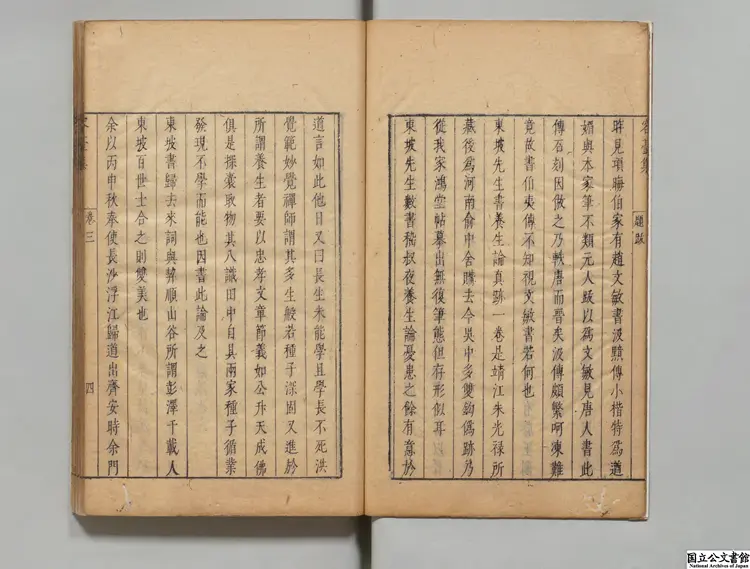 容臺集
題跋
昨見項晦伯家有趙文敏書汲黯傳小楷特為遒
媚與本家筆不類元人跋以為文敏見唐人書此
傳石刻因倣之乃軼唐而晉矣汲傳頗繁呵凍難
竟故書伯夷傳不知視文敏書若何也
東坡先生書養生論真跡一卷是靖江朱光祿所
藏後為河南俞中舍購去今吳中多雙鈎偽跡乃
從我家鴻堂帖摹出無復筆態但存形似耳
東坡先生數書嵇叔夜養生論憂患之餘有意於
道言如此他日又曰長生未能學且學長不死洪
覺範妙覺禪師謂其多生般若種子深固又進於
所謂養生者要以忠孝文章節義如公升天成佛
俱是探囊取物其八識田中自具兩家種子循業
發現不學而能也因書此論及之
東坡書歸去來詞與契順山谷所謂彭澤千載人
東坡百世士合之則雙美也
余以丙申秋奉使長沙浮江歸道出齊安時余門
容臺集
卷三
四
国立公文書館
National Archives of Japan